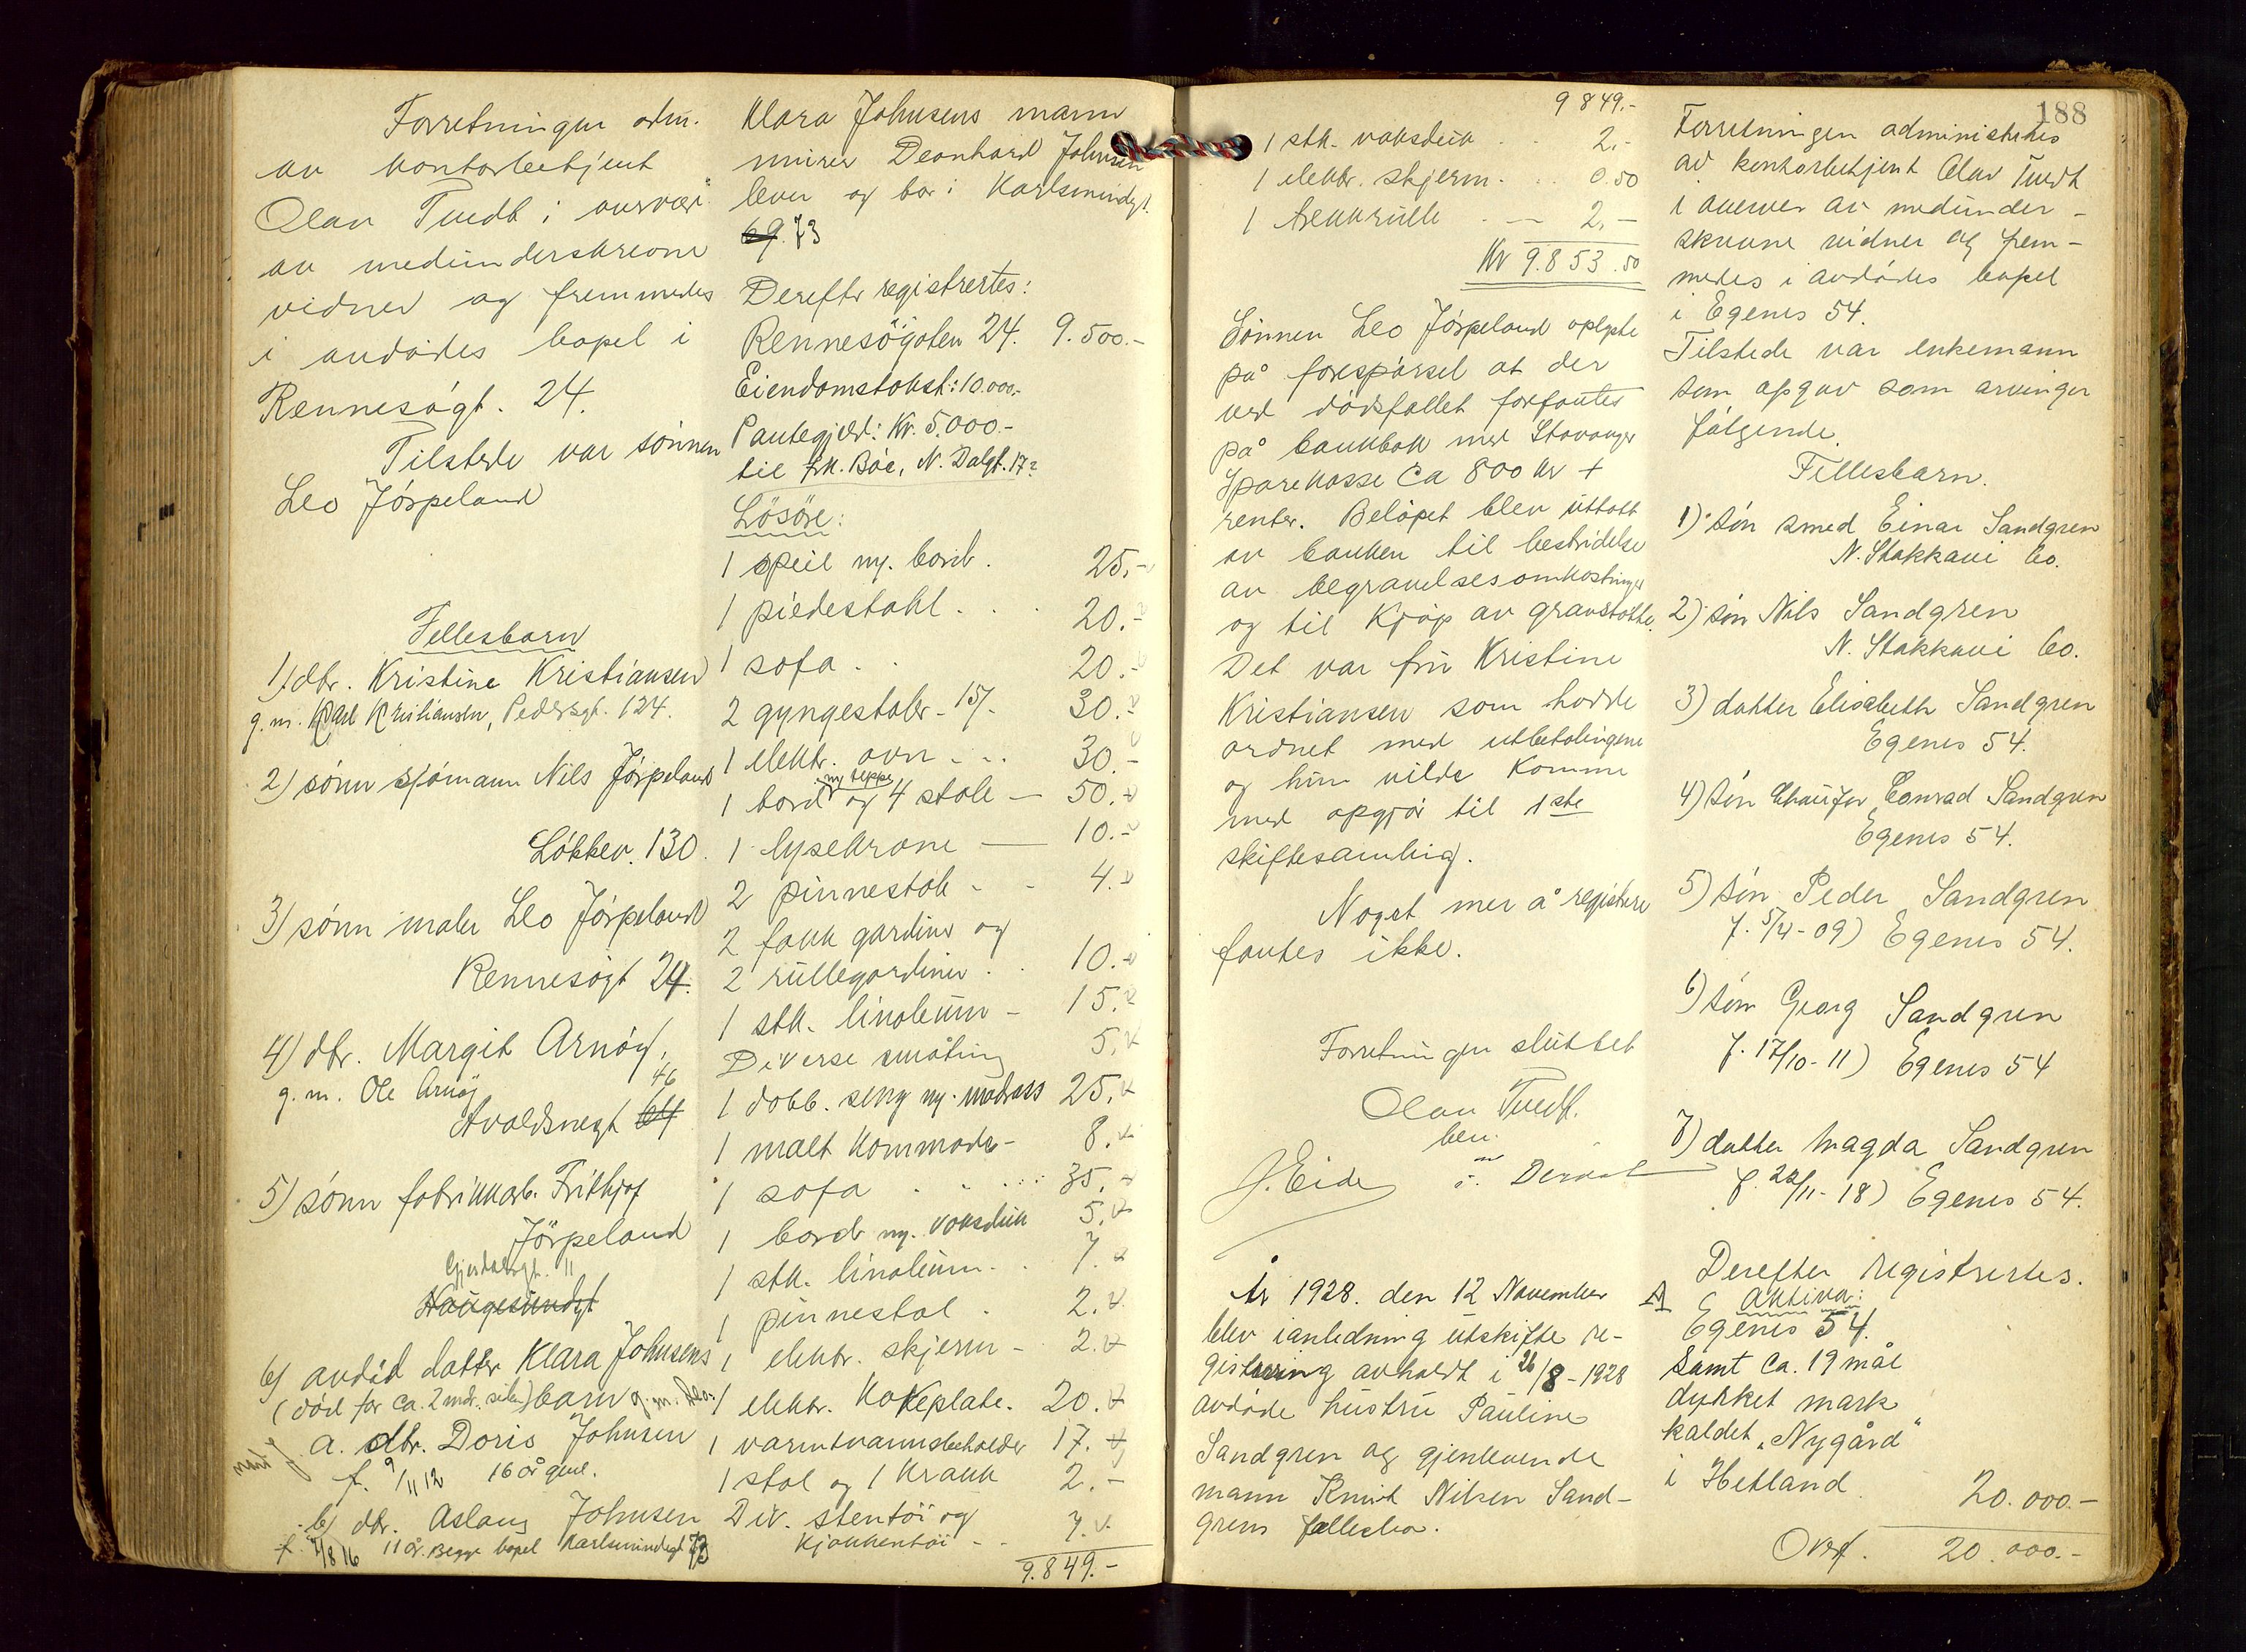 Forretningen adm.
av kontorbetjent
Olav Tvedt i overvær
av medunderskrevne
vidner og fremmedes
i avdødes bopel i
Rennesøgt. 24.
Tilstede var sønnen
Leo Jørpeland
Fellesbarn
1) dtr. Kristine Kristiansen
g.m. Karl Kristiansen, Pedersgt. 124.
2) sønn sjømann Nils Jørpeland
Løkkev. 130.
3) sønn maler Leo Jørpeland
Rennesøgt 24.
4) dtr. Margit Arnøy,
g.m. Ole Arnøy
46
Avaldsnesgt 64
5) sønn fabrikkarb. Frithjof
Jørpeland
Gjesdalsgt. 11
Haugesundgt
6) avdød datter Klara Johnsens
(død for ca. 2 mdr. siden) barn g.m. Leo-
a. dtr. Doris Johnsen
f. 9/11 12 16 år gml.
b) dtr. Aslaug Johnsen
f. 7/8 16 11 år. Begge bopel Karlsmindegt 73
Klara Johnsens mann
murer Leonhard Johnsen
lever og bor i Karlsmindegt.
69. 73
Derefter registrertes:
Rennesøgaten 24. 9.500.-
Eiendomstakst: 10.000.-
Pantegjeld: Kr. 5.000.-
til frk. Bøe, N. Dalgt. 17?
Løsøre:
1 speil m. bord. 25.-
1 piedestahl . . . 20.-
1 sofa . . 20.-
2 gyngestoler - 15/- 30.-
1 elektr. ovn . . . 30.-
m teppe
1 bord og 4 stole — 50.-
1 lysekrone — 10.-
2 pinnestole - - 4.-
2 fakk gardiner og
2 rullegardiner . . 10.-
1 stk. linoleum - 15.-
Diverse småting 5.-
1 dobb. seng m. madrass 25.-
1 malt kommode - 8.-
1 sofa . . . . . 35.-
1 bord m. voksduk 5.-
1 stk. linoleum . . 7.-
1 pinnestol . 2.-
1 elektr. skjerm - 2.-
1 elektr. kokeplate. 20.-
1 varmtvannsbeholder 17.-
1 stol og 1 krakk 2.-
Div. stentøi og
kjøkkentøi - - 7.-
9.849.-
9849.-
1 stk. voksduk . . 2.-
1 elektr. skjerm. . . 0.50
1 trekkrulle . — 2.-
Kr 9.853.50
Sønnen Leo Jørpeland oplyste
på forespørsel at der
ved dødsfallet forfantes
på bankbok med Stavanger
Sparekasse ca 800 kr +
renter. Beløpet blev uttatt
av banken til bestridelse
av begravelsesomkostninger
og til kjøp av gravstøtte.
Det var fru Kristine
Kristiansen som hadde
ordnet med utbetalingene
og hun vilde komme
med opgjør til 1ste
skiftesamling.
Noget mer å registrere
fantes ikke.
Forretningen sluttet
Olav Tvedt.
ben.
J. Eide
År 1928. den 12 November
blev ianledning utskifte re-
gistrering avholdt i 26/8-1928
avdøde hustru Pauline
Sandgren og gjenlevende
mann Knut Nilsen Sand-
grens fællesbo.
188
Forretningen administrertes
av kontorbetjent Olav Tvedt
i overvær av medunder-
skrevne vidner og frem-
medes i avdødes bopel
i Egenes 54.
Tilstede var enkemann
som opgav som arvinger
følgende.
Fellesbarn.
1) søn smed Einar Sandgren
N. Stokkavei 60.
2) søn Nils Sandgren
N. Stokkavei 60.
3) datter Elisabeth Sandgren
Egenes 54.
4) søn Chaufør Conrad Sandgren
Egenes 54.
5) søn Peder Sandgren
f. 5/4-09) Egenes 54.
6) søn Georg Sandgren
f. 17/10-11) Egenes 54
7) datter Magda Sandgren
f. 22/11-18) Egenes 54.
Derefter registrertes.
A Aktiva:
Egenes 54.
Samt ca. 19 mål
dyrket mark
kaldet „Nygård"
i Hetland. 20.000.-
Overf. 20.000.-